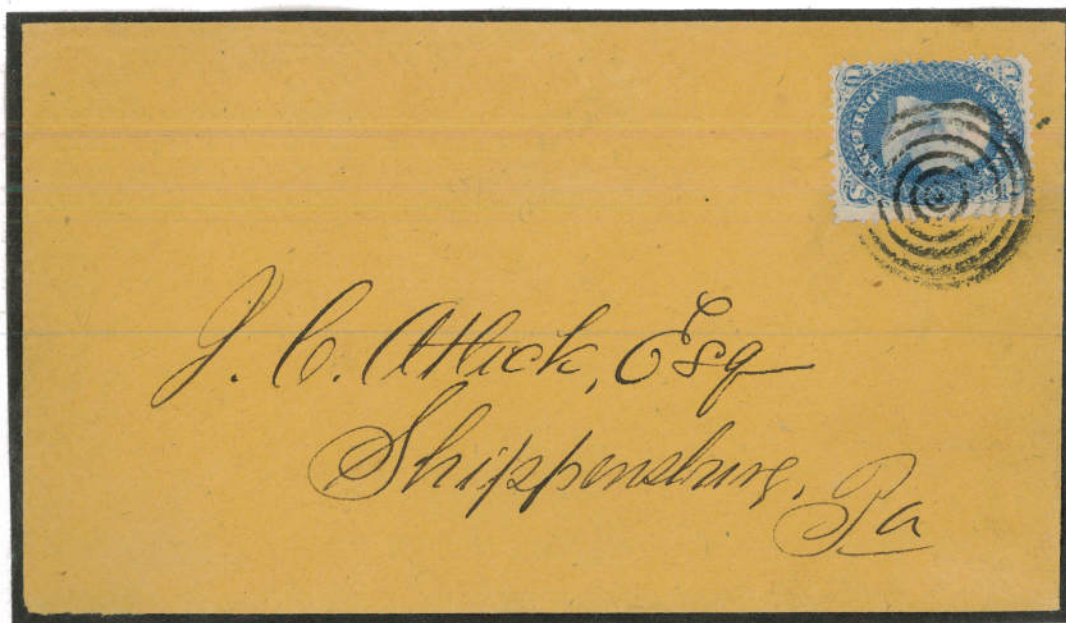 J. C. Attick, Esq
Shippensburg, Pa